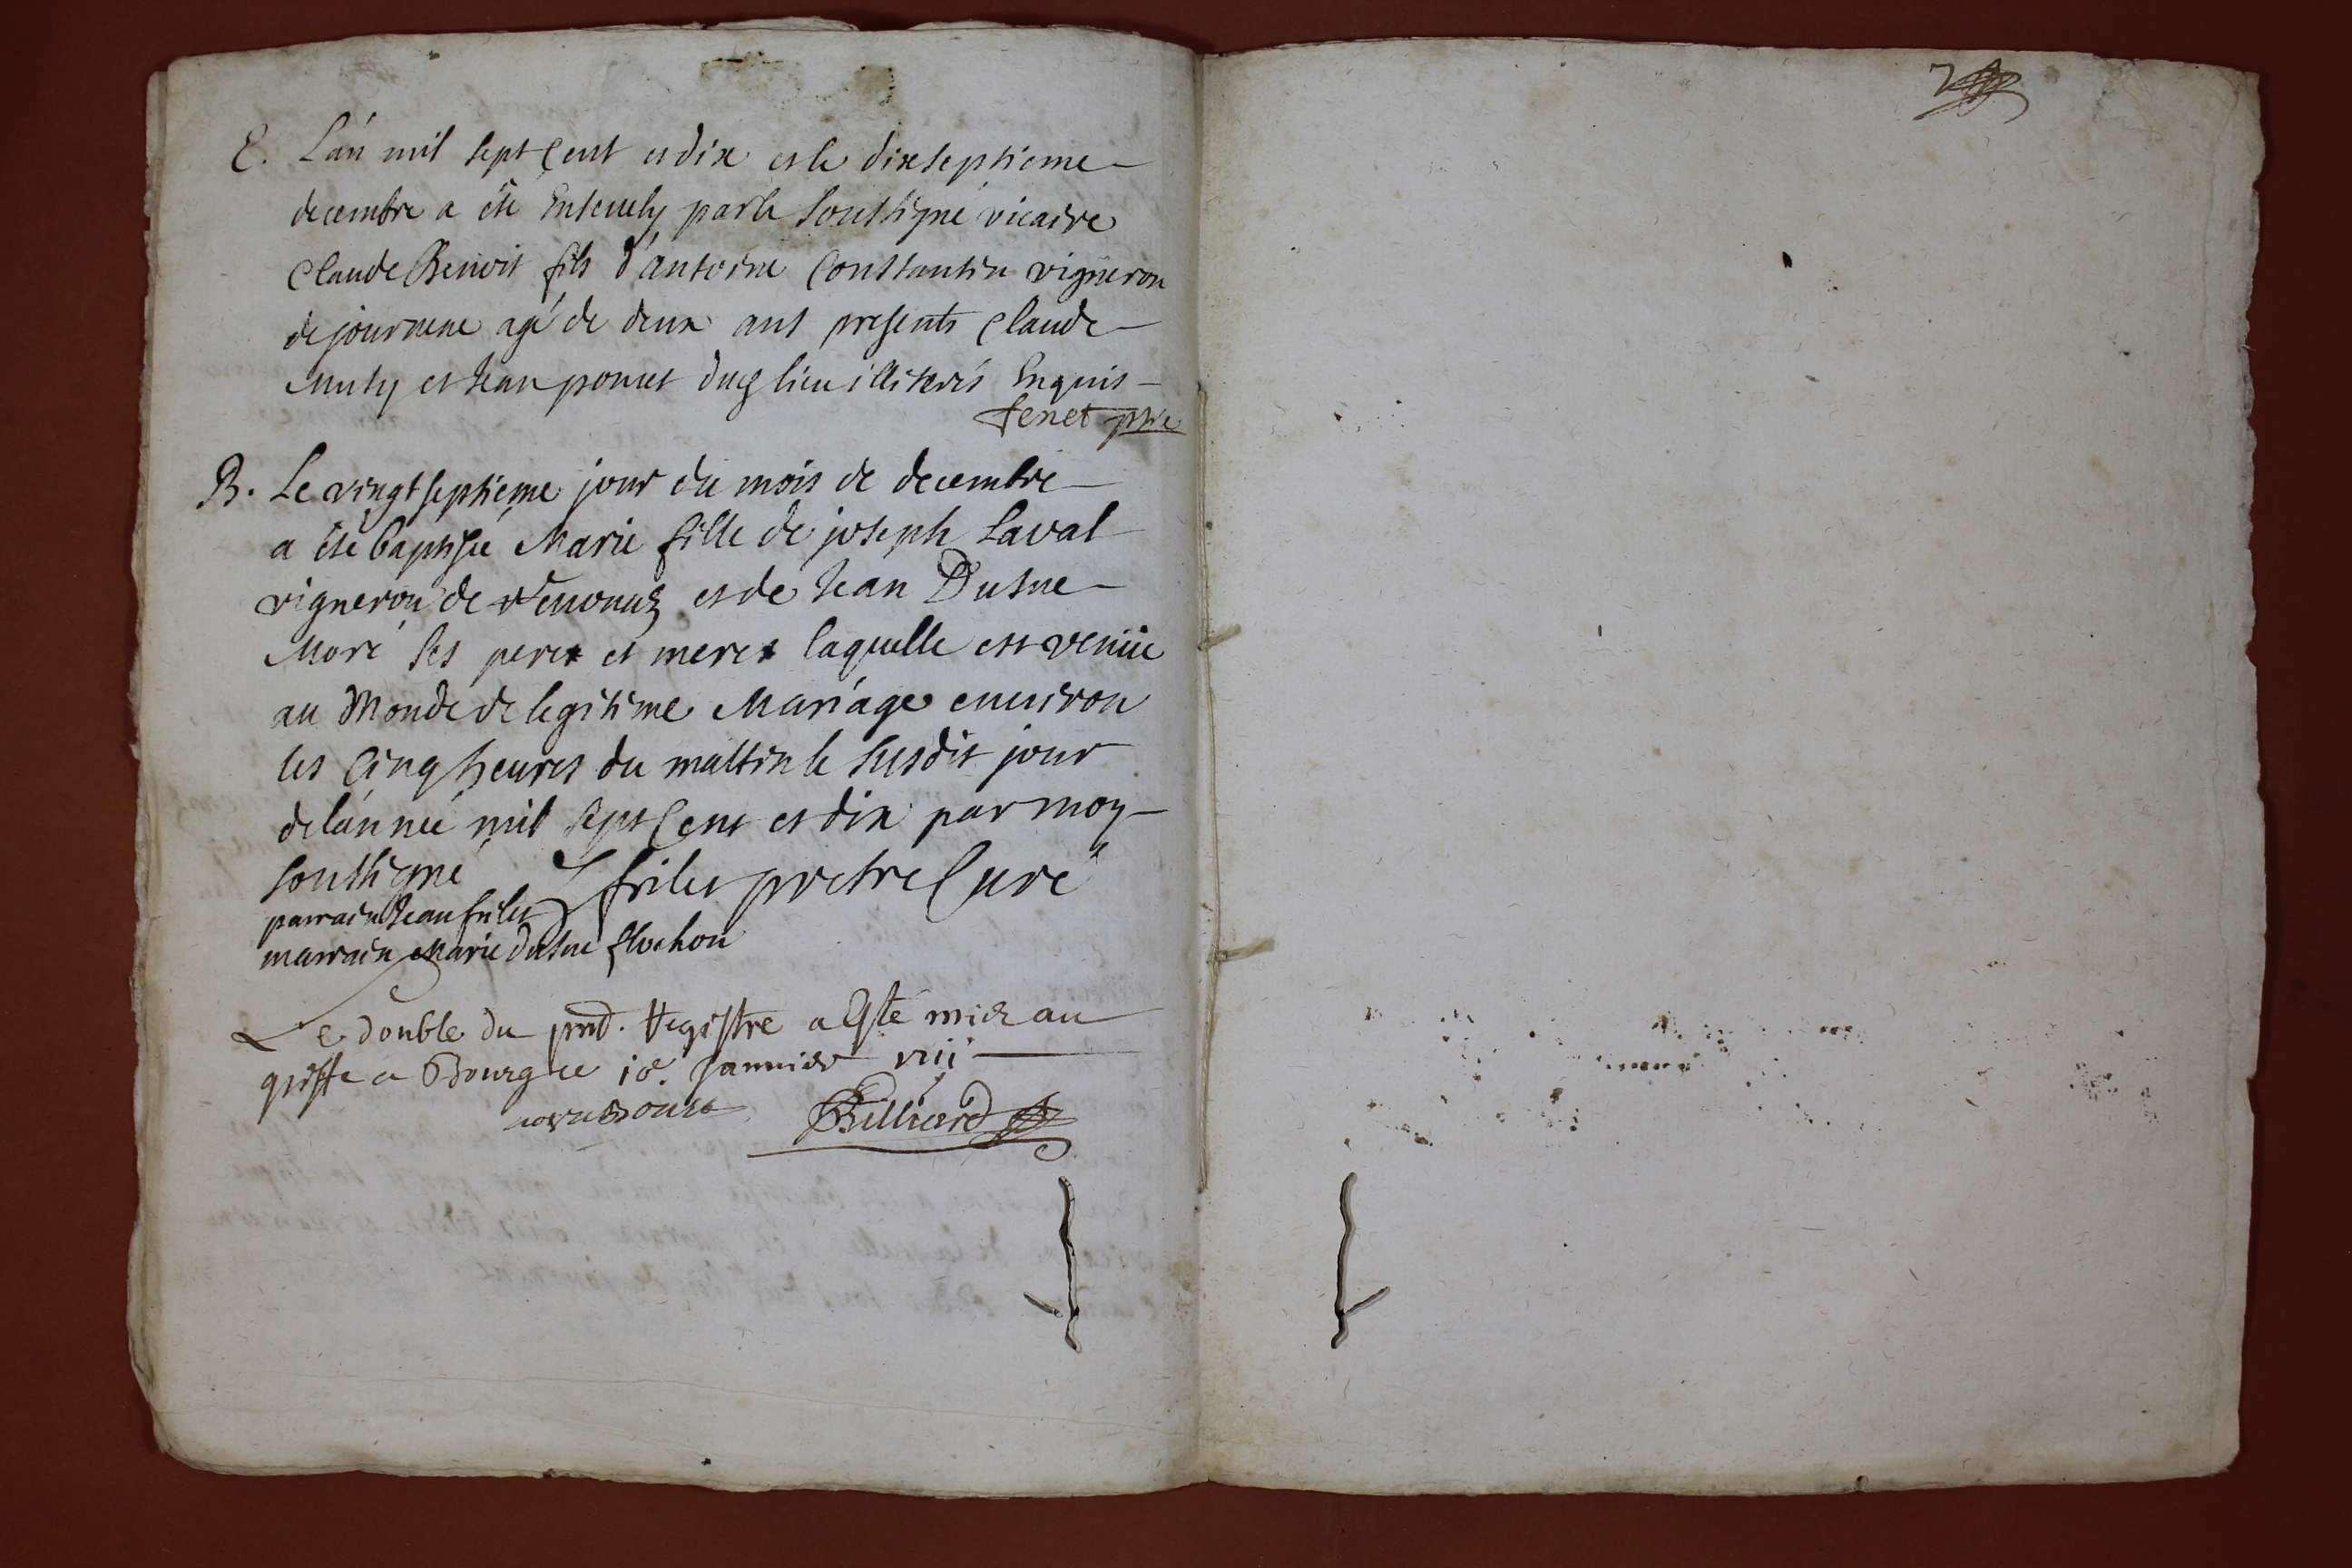 7
E. L'an mil sept cent et dix et le dixseptieme
decembre a été Ensevely par le soussigné vicaire
Claude Benoit fils d'antoine Constantin vigneron
de journene agé de deux ans presents Claude
Muty et Jean pomet dud lieu illiterés Enquis
fenet ptre
B. Le vingtseptieme jour du mois de decembre
a été baptisée Marie fille de joseph Laval
vigneron de et de Jean Dusne
Moré ses pere et mere laquelle est venüe
au Monde de legitime Mariage environ
les Cinq heures du mattin le susdit jour
de l'année mil sept Cent et dix par moy
soussigné frilet pretre Curé
parrain Jean frilet
marrain Marie dusne flochon
Le double du pnt. Registre a Esté mis au
greffe a Bourg ce 10e. Januier
Billiard